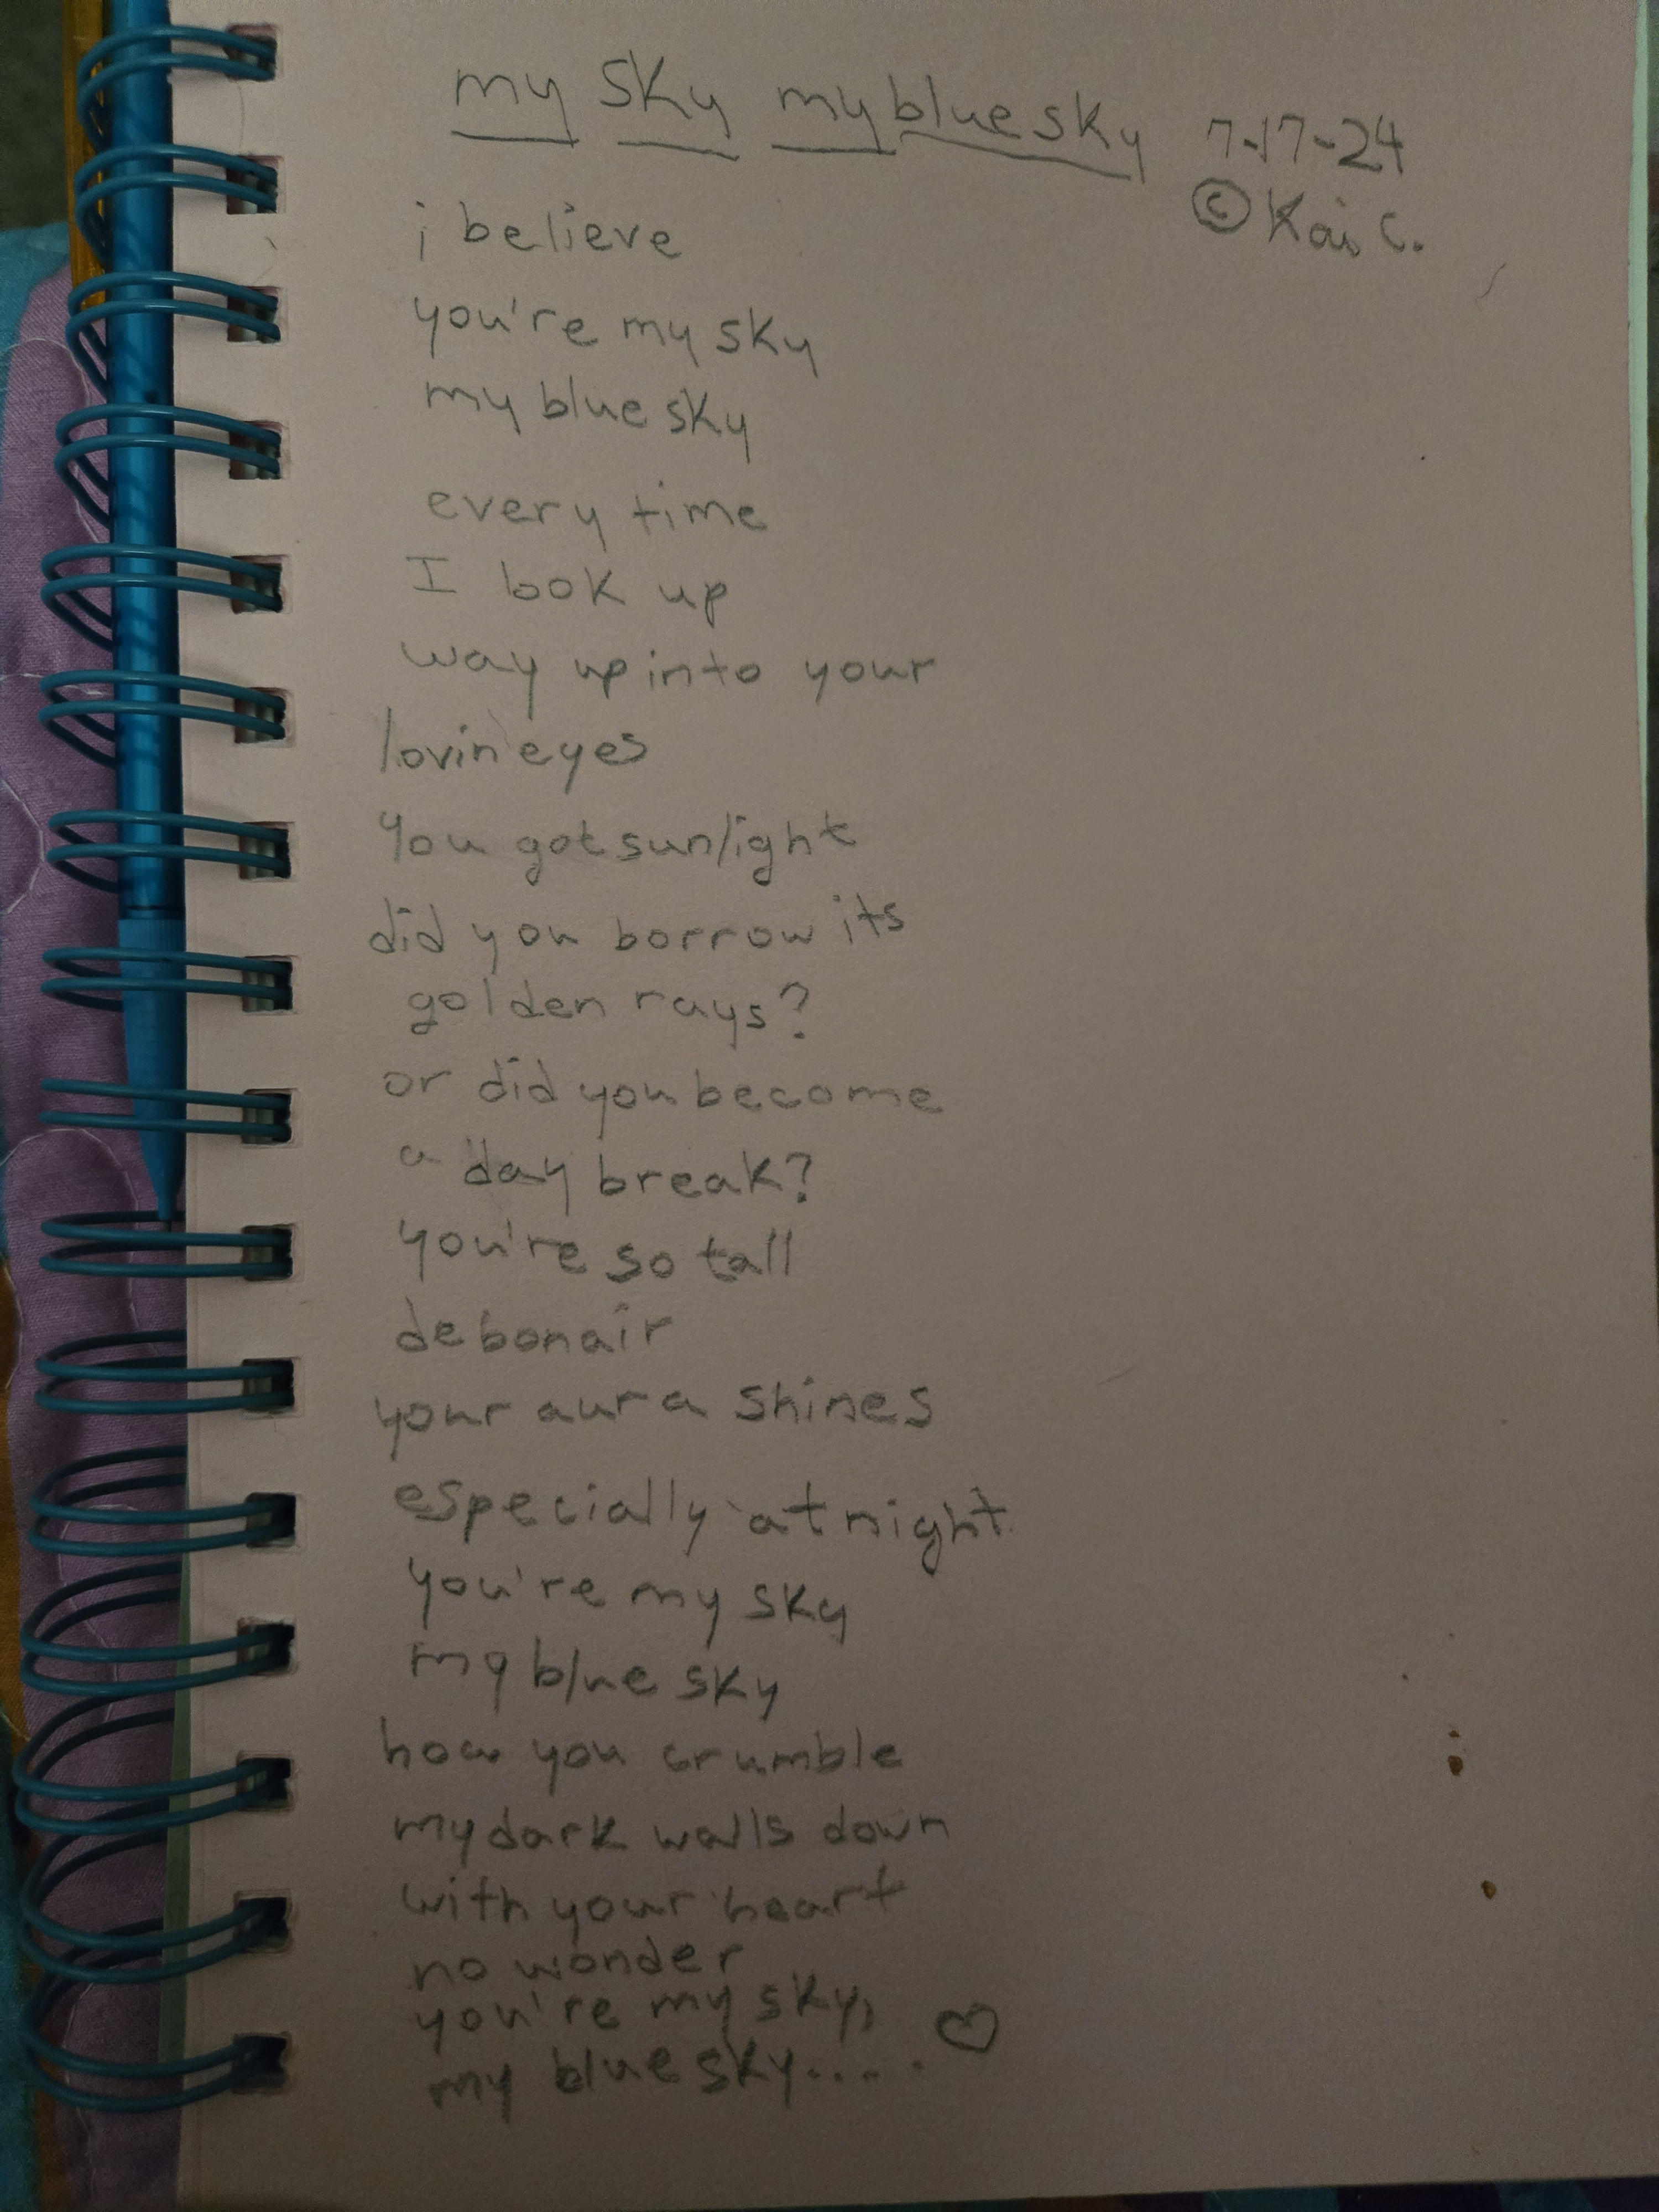 my sky my blue sky 7-17-24
© Kai C.
i believe
you're my sky
my blue sky
every time
I look up
way up into your
lovin' eyes
You got sunlight
did you borrow its
golden rays?
or did you become
a day break?
you're so tall
debonair
your aura shines
especially at night
you're my sky
my blue sky
how you crumble
my dark walls down
with your heart
no wonder
you're my sky,
my blue sky.... . ♡